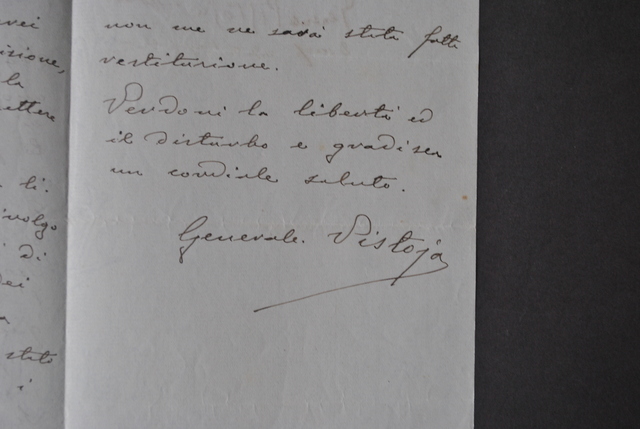 non me ne sarà stata fatta
restituzione.
Perdoni la libertà ed
il disturbo e gradisca
un cordiale saluto.
Generale Pistoja
isione,
la
ettere
li.
ivolgo
di
dei
stato
i